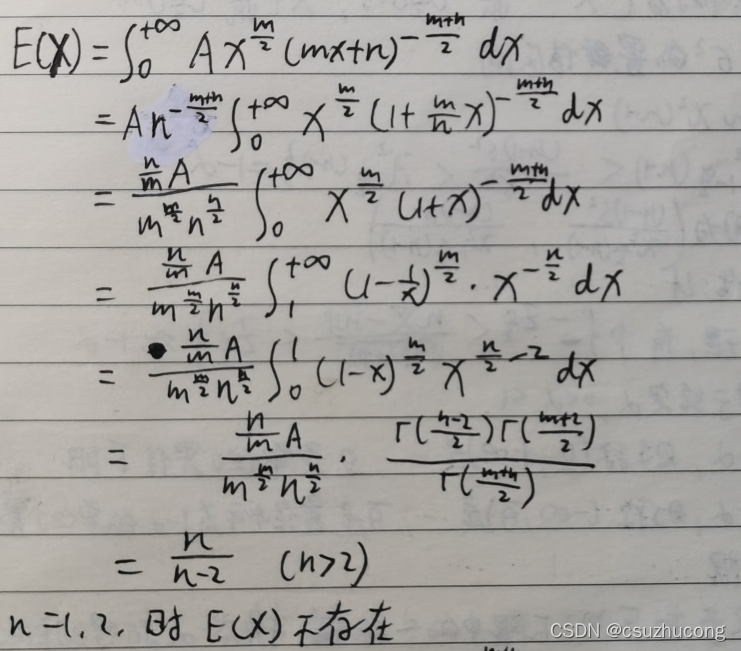 E(X) = ∫₀^{+∞} A x^{m/2} (mx+n)^{-(m+n)/2} dx
= A n^{-(m+n)/2} ∫₀^{+∞} x^{m/2} (1+ m/n x)^{-(m+n)/2} dx
= (n/m A)/(m^{m/2} n^{n/2}) ∫₀^{+∞} x^{m/2} (1+x)^{-(m+n)/2} dx
= (n/m A)/(m^{m/2} n^{n/2}) ∫₁^{+∞} (1-1/x)^{m/2} · x^{-n/2} dx
= (n/m A)/(m^{m/2} n^{n/2}) ∫₀^{1} (1-x)^{m/2} x^{n/2 -2} dx
= (n/m A)/(m^{m/2} n^{n/2}) · Γ((n-2)/2)Γ((m+2)/2)/Γ((m+n)/2)
= n/(n-2) (n>2)
n=1,2,时 E(X)不存在
CSDN @csuzhucong